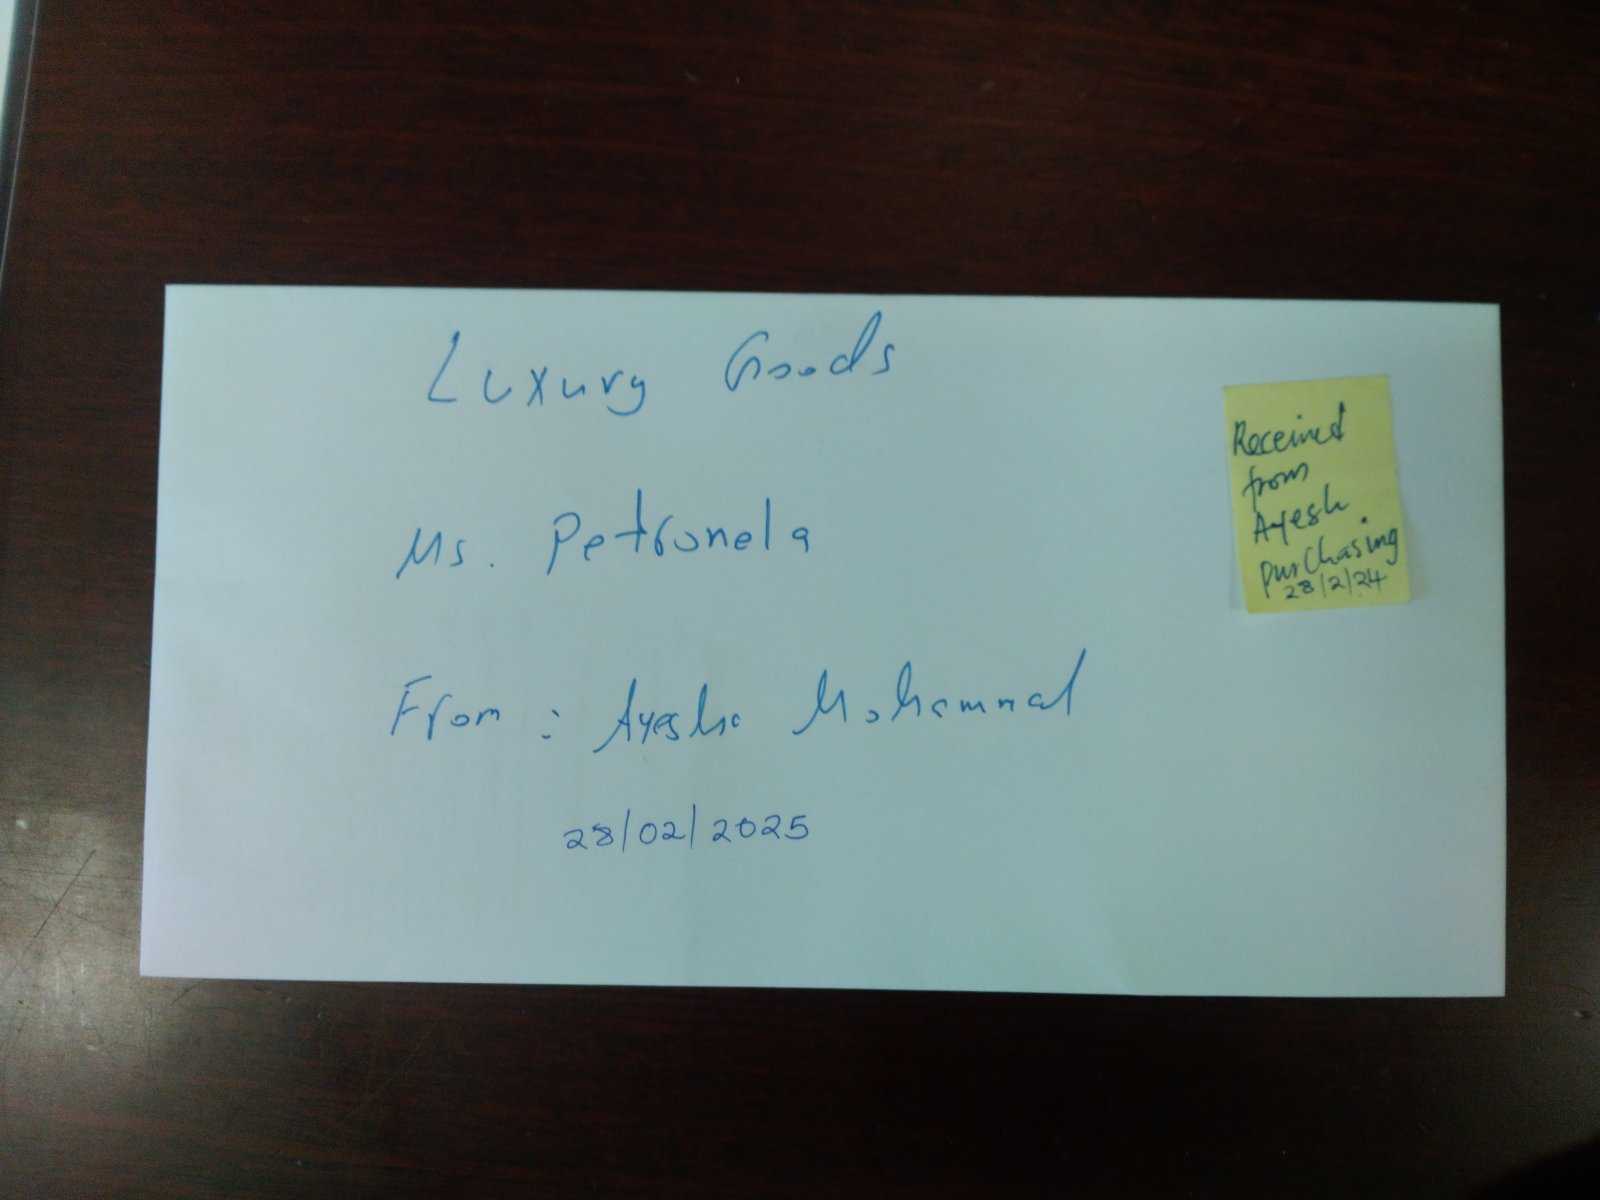 Luxury Goods
Ms. Petronela
From : Ayesha Mohammad
28/02/2025
Received
from
Ayesh
purchasing
28/2/24